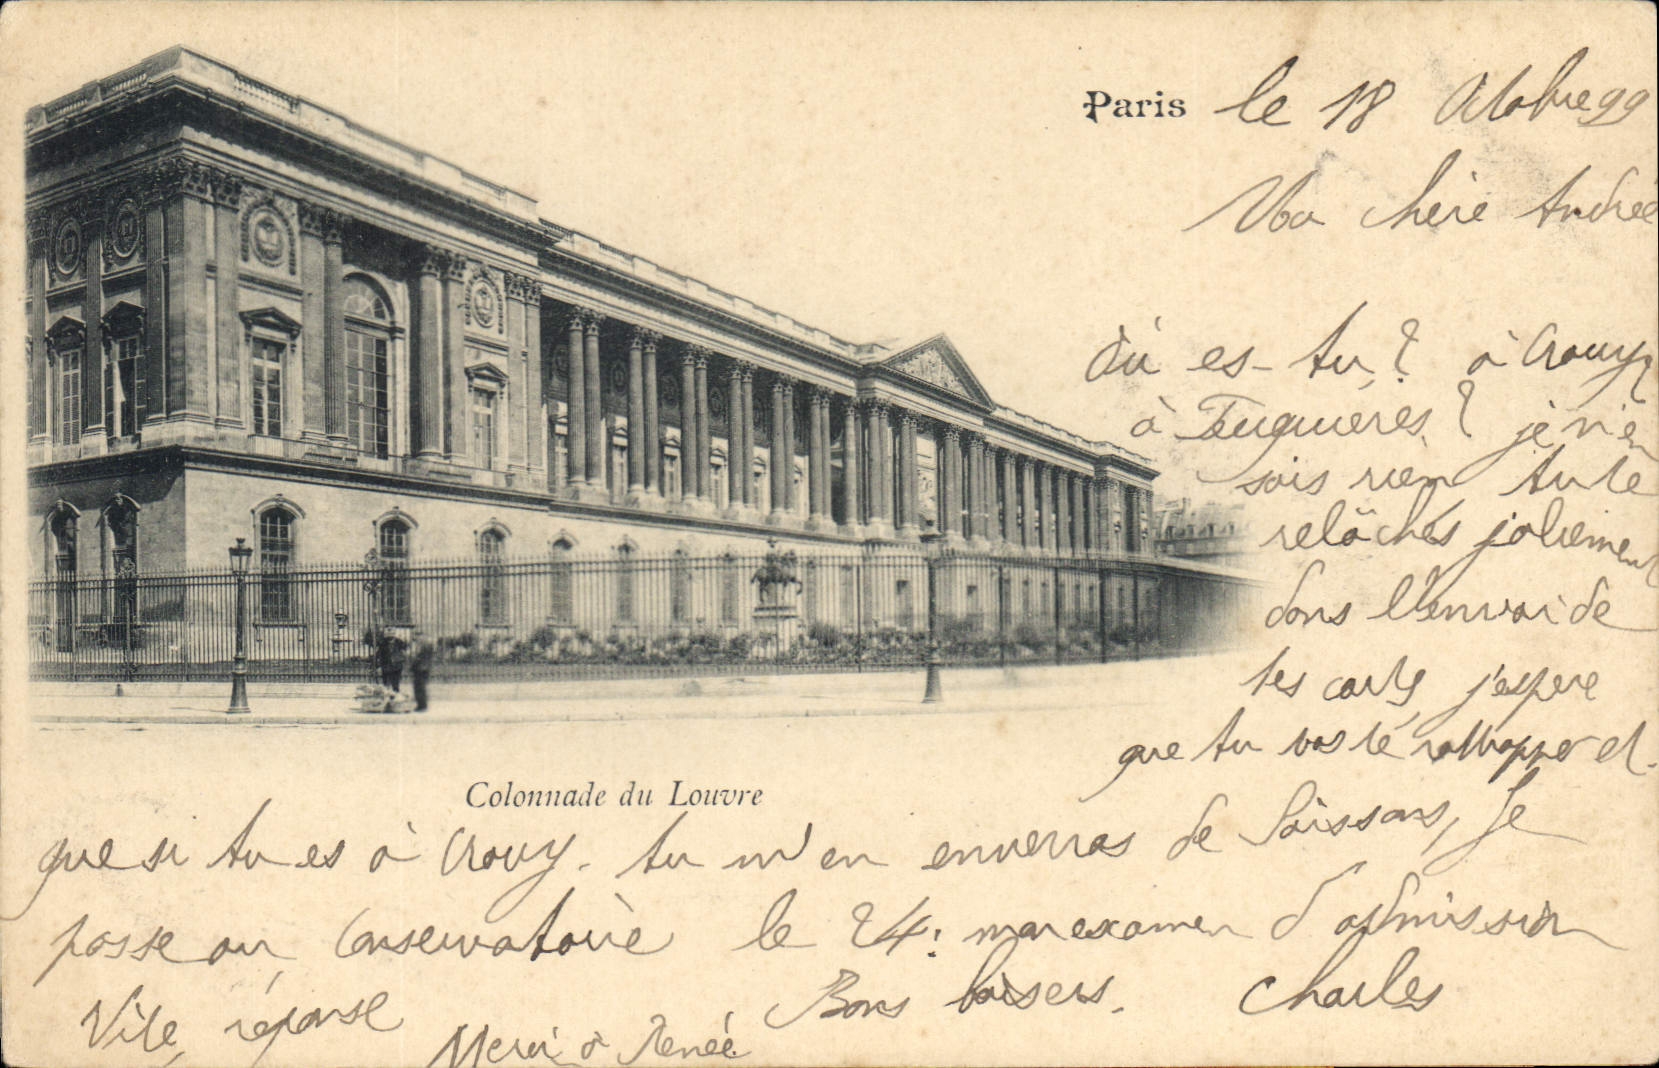 Paris le 18 Octobre 99
Ma chère Andrée
Où es-tu ? à Crouy
à Fouguières ? je n'en
sais rien tu te
relâches joliement
dans l'envoi de
tes cartes j'espère
que tu vas te rattrapper et
Colonnade du Louvre
que si tu es à Crouy. tu m'en enverras de Soissons, Je
passe au Conservatoire le 24: mon examen d'admission
Vite, réponse Bons baisers. Charles
Merci à Renée